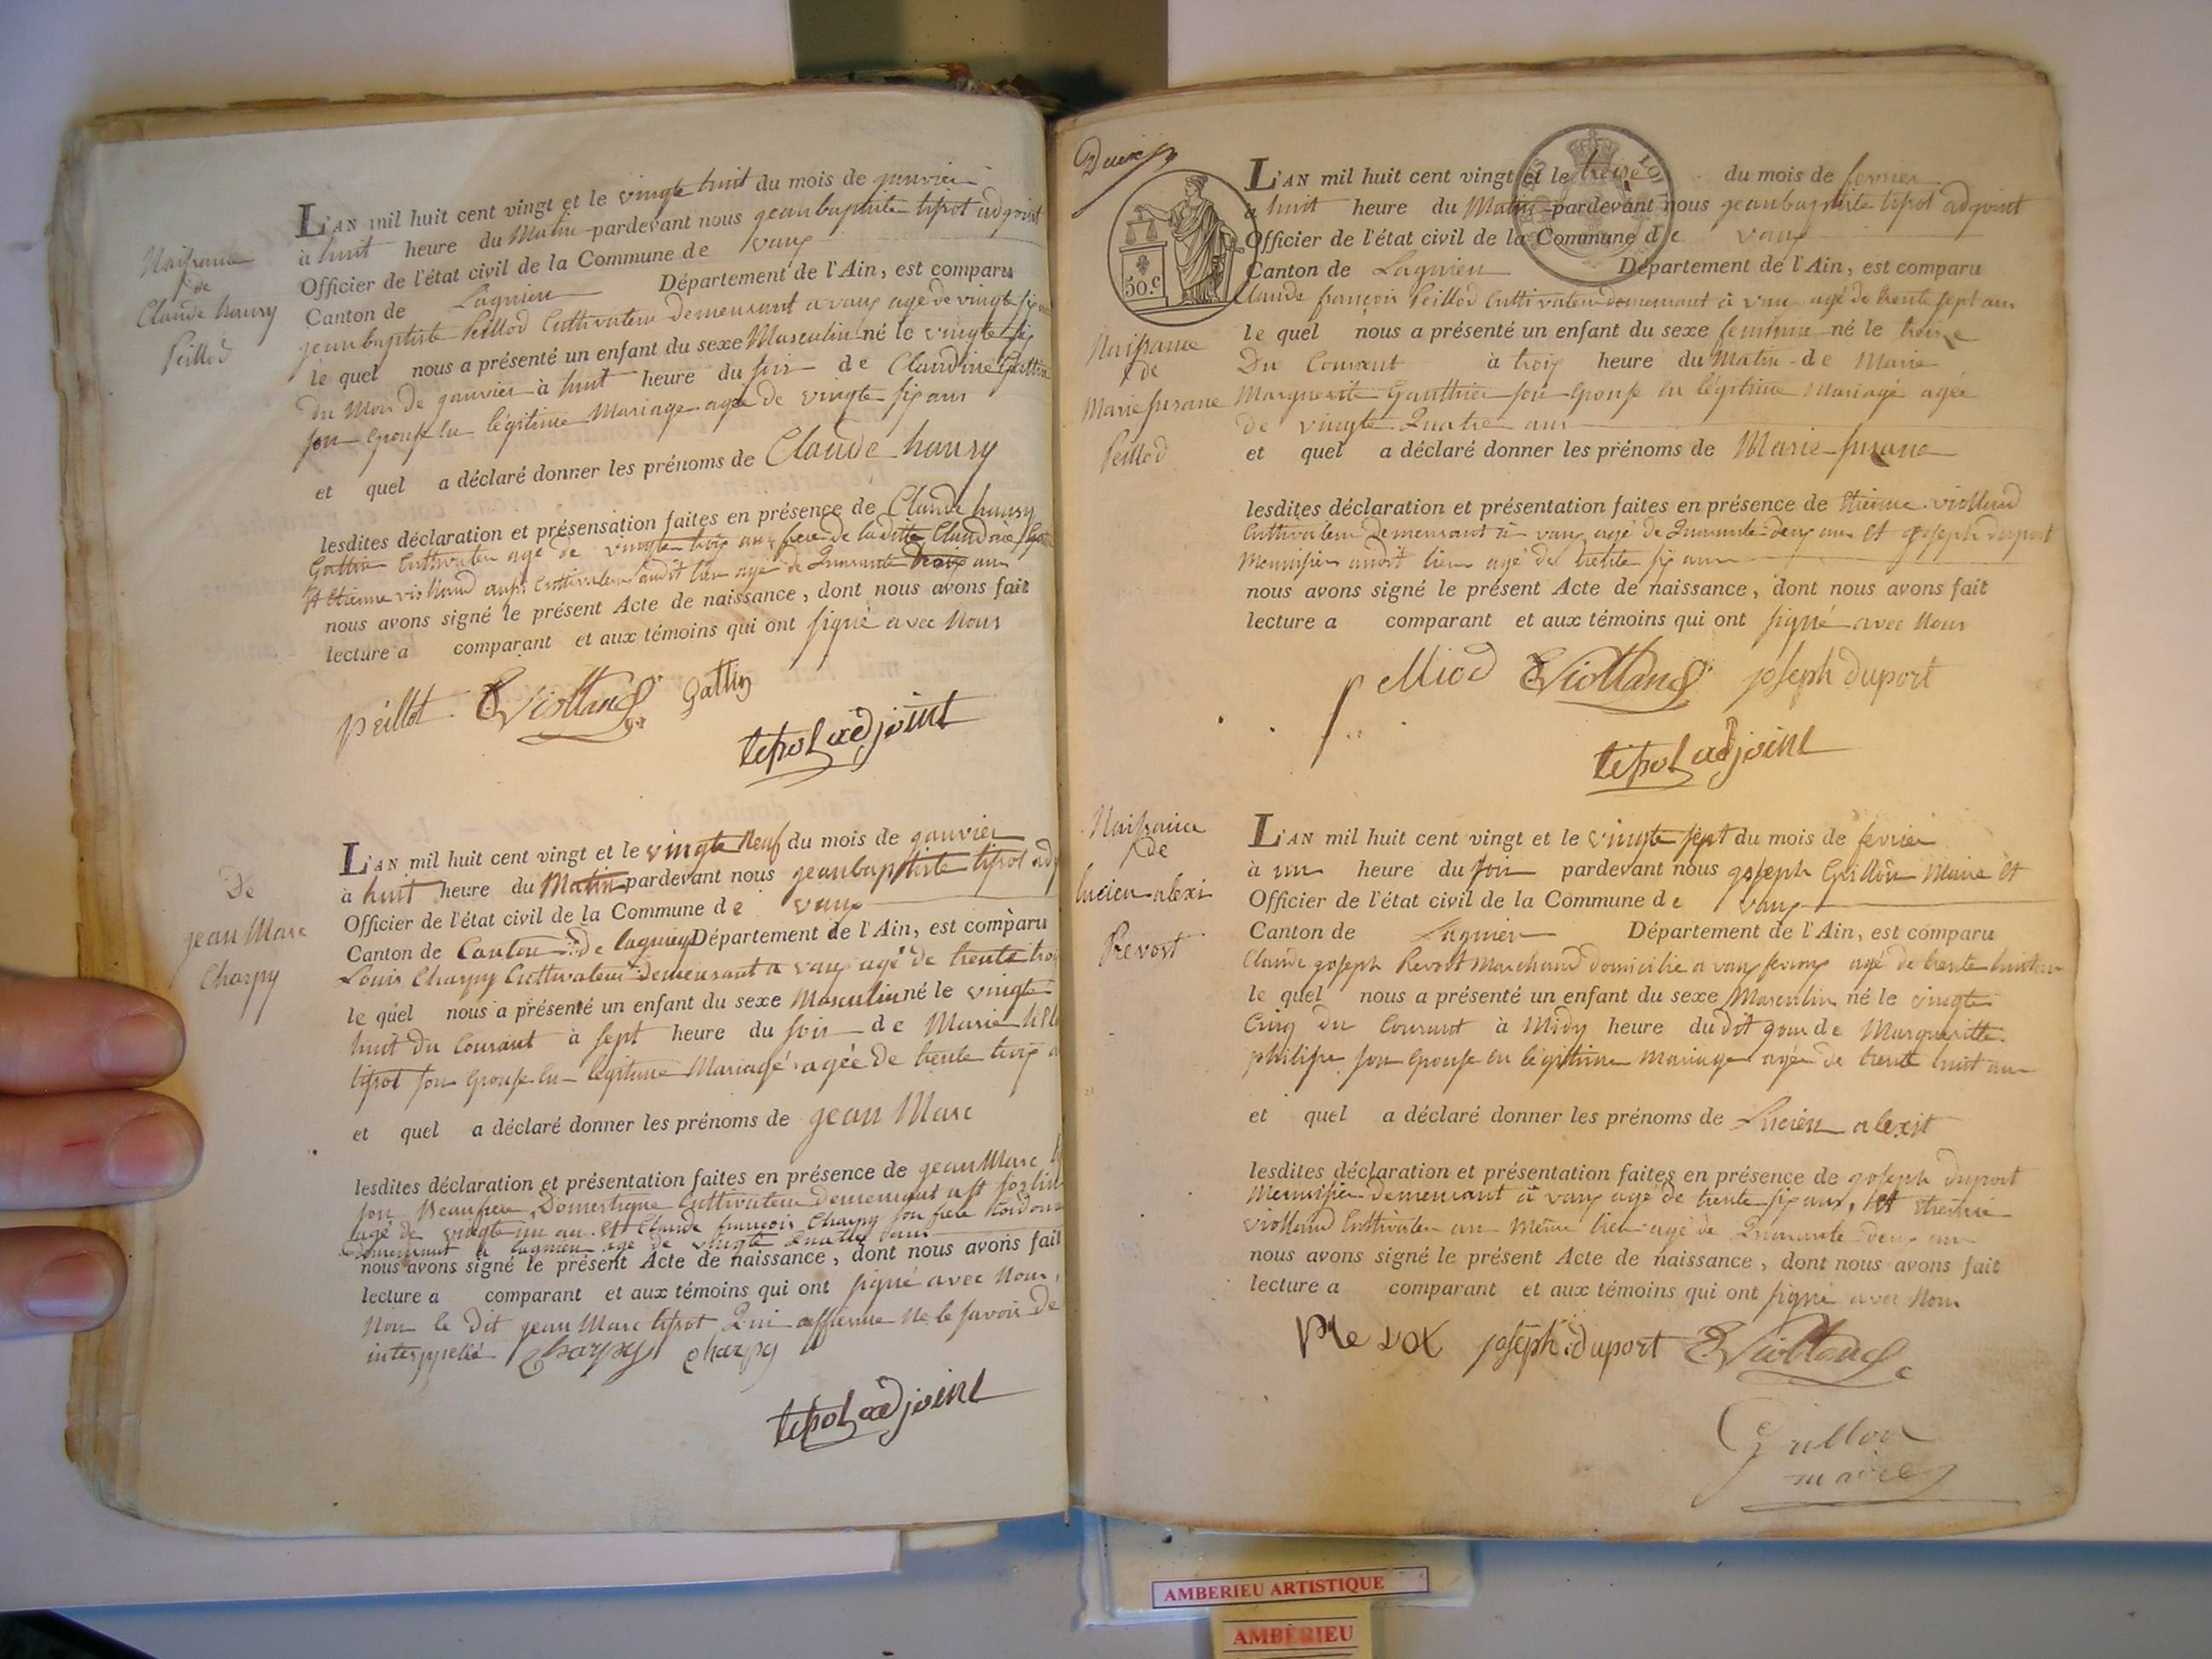 Naissance
de
Claude henry
Peillod
L'AN mil huit cent vingt et le vingte huit du mois de janvier
à huit heure du Matin pardevant nous jean baptiste tissot adjoint
Officier de l'état civil de la Commune de vaux
Canton de Lagnieu Département de l'Ain, est comparu
jean baptiste Peillod Cultivateur demeurant a vaux agé de vingte six ans
le quel nous a présenté un enfant du sexe Masculin né le vingte six
du Mois de janvier à huit heure du soir de Claudine Gattin
son Epouse en légitime Mariage agée de vingte six ans
et quel a déclaré donner les prénoms de Claude henry
lesdites déclaration et présensation faites en présence de Claude henry
Gattin Cultivateur agé de vingte trois ans frere de la ditte Claudine
et Etienne viollaud aussi Cultivateur audit lieu agé de Quarante deux ans
nous avons signé le présent Acte de naissance, dont nous avons fait
lecture a comparant et aux témoins qui ont signé avec Nous
peillot EViolland gattin
tissot adjoint
De
jean Marc
Charpy
L'AN mil huit cent vingt et le vingte Neuf du mois de janvier
à huit heure du Matin pardevant nous jean baptiste tissot adj
Officier de l'état civil de la Commune de vaux
Canton de Canton de lagnieu Département de l'Ain, est comparu
Louis Charpy Cultivateur demeurant a vaux agé de trente trois
le quel nous a présenté un enfant du sexe Masculin né le vingte
huit du Courant à sept heure du soir de Marie
tissot son Epouse en légitime Mariagé agée de trente trois
et quel a déclaré donner les prénoms de jean Marc
lesdites déclaration et présentation faites en présence de jean Marc
son Beaufrere, Domestique Cultivateur demeurant
agé de vingte un an. et Claude françois Charpy son frere
demeurant a lagnieu agé de vingte quatre ans
nous avons signé le présent Acte de naissance, dont nous avons fait
lecture a comparant et aux témoins qui ont signé avec Nous,
Non le dit jean Marc tissot Qui affirme ne le savoir de
interppellé Charpy Charpy
tissot adjoint
Deux
50.c
LOI
Naissance
de
Marie susane
Peillod
L'AN mil huit cent vingt et le treise du mois de fevrier
à huit heure du Matin pardevant nous jean baptiste tissot adjoint
Officier de l'état civil de la Commune de vaux
Canton de Lagnieu Département de l'Ain, est comparu
Claude françois Peillod Cultivateur demeurant à vaux agé de trente sept ans
le quel nous a présenté un enfant du sexe feminin né le treise
Du Courant à trois heure du Matin de Marie
Marguerite Gauthier son Epouse en légitime Mariage agée
de vingte Quatre ans
et quel a déclaré donner les prénoms de Marie susane
lesdites déclaration et présentation faites en présence de Etienne viollaud
Cultivateur demeurant à vaux agé de Quarante deux ans et joseph duport
Menuisier audit lieu agé de trente six ans
nous avons signé le présent Acte de naissance, dont nous avons fait
lecture a comparant et aux témoins qui ont signé avec Nous
EViolland joseph duport
tissot adjoint
Naissance
de
lucien alexi
Prevost
L'AN mil huit cent vingt et le vingte sept du mois de fevrier
à un heure du soir pardevant nous joseph Grillon Maire et
Officier de l'état civil de la Commune de vaux
Canton de Lagnieu Département de l'Ain, est comparu
Claude joseph Prevost Marchand domicilié a vaux agé de trente huit ans
le quel nous a présenté un enfant du sexe Masculin né le vingte
Cinq du Courant à Midy heure du dit jour de Margueritte
philipe son Epouse en légithime mariage agée de trente huit ans
et quel a déclaré donner les prénoms de Lucien alexit
lesdites déclaration et présentation faites en présence de joseph duport
Menuisier demeurant à vaux agé de trente six ans, et Etienne
viollaud Cultivateur au Même lieu agé de Quarante deux ans
nous avons signé le présent Acte de naissance, dont nous avons fait
lecture a comparant et aux témoins qui ont signé avec Nous
joseph duport EViolland
Grillon
maire
AMBERIEU ARTISTIQUE
AMBÉRIEU